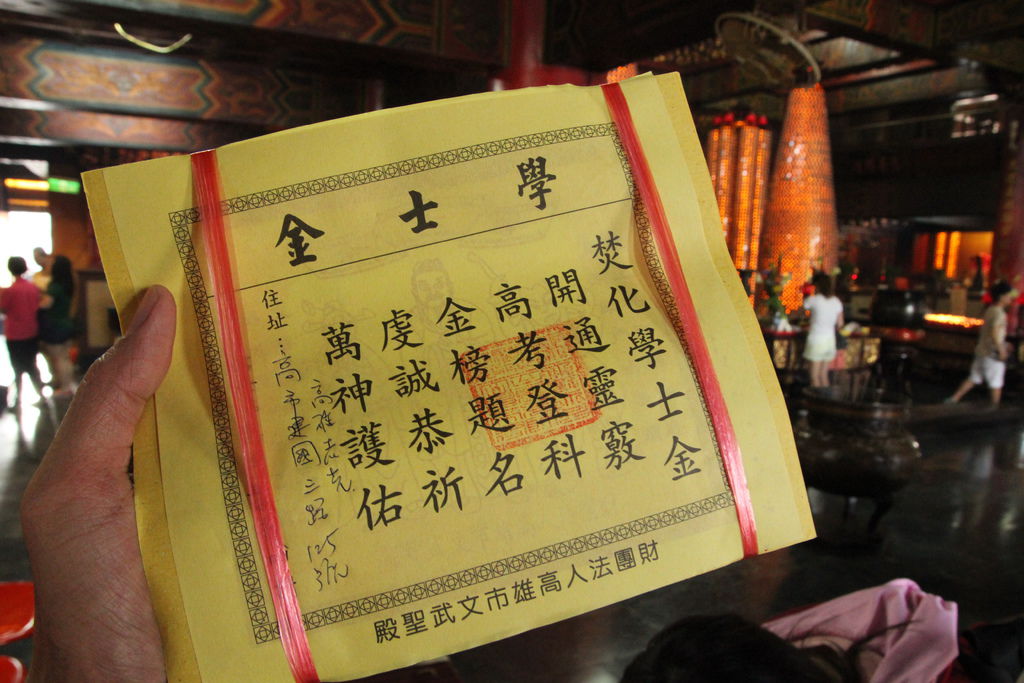 學士金
焚化學士金
開通靈竅
高考登科
金榜題名
虔誠恭祈
萬神護佑
高雄志光
住址:高市建國三路125
財團法人高雄市文武聖殿